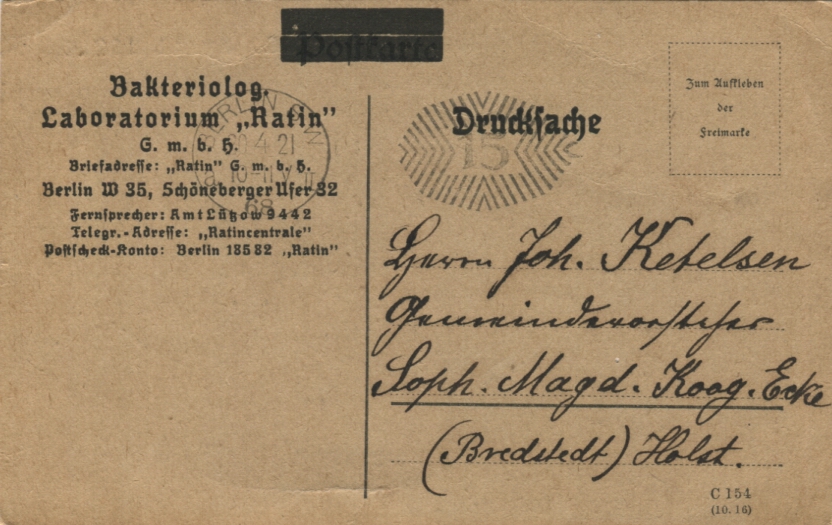 Postkarte
Bakteriolog.
Laboratorium „Ratin”
G. m. b. H.
Briefadresse: „Ratin” G. m. b. H.
Berlin W 35, Schöneberger Ufer 32
Fernsprecher: Amt Lützow 9442
Telegr.-Adresse: „Ratincentrale”
Postscheck-Konto: Berlin 18582 „Ratin”
BERLIN
4 21
68
Drucksache
15
Zum Aufkleben
der
Freimarke
Herrn Joh. Ketelsen
Gemeindevorsteher
Soph. Magd. Koog. Ecke
(Bredstedt) Holst.
C 154
(10. 16)